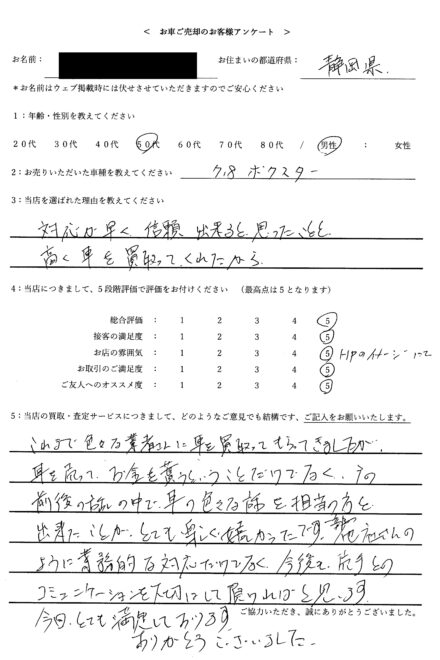 ＜　お車ご売却のお客様アンケート　＞
お名前：　お住まいの都道府県：　静岡県
＊お名前はウェブ掲載時には伏せさせていただきますのでご安心ください
1：年齢・性別を教えてください
20代　30代　40代　50代　60代　70代　80代　/　男性　：　女性
2：お売りいただいた車種を教えてください　718 ボクスター
3：当店を選ばれた理由を教えてください
対応が早く、信頼出来ると思ったことと
高く車を買取ってくれたから
4：当店につきまして、5段階評価で評価をお付けください　（最高点は5となります）
総合評価：　1　2　3　4　5
接客の満足度：　1　2　3　4　5
お店の雰囲気：　1　2　3　4　5　HPのイメージにて
お取引のご満足度：　1　2　3　4　5
ご友人へのオススメ度：　1　2　3　4　5
5：当店の買取・査定サービスにつきまして、どのようなご意見でも結構です、ご記入をお願いいたします。
これまで色々な業者さんに車を買取ってもらってきましたが、
車を売って、お金を貰うということだけでなく、その
前後の話の中で、車の色々な話を担当の方と
出来たことが、とても楽しく嬉しかったです。他社さんの
ように業務的な対応だけでなく、今後も、売手との
コミュニケーションを大切にして頂ければと思います。
ご協力いただき、誠にありがとうございました。
今回、とても満足しております。
ありがとうございました。